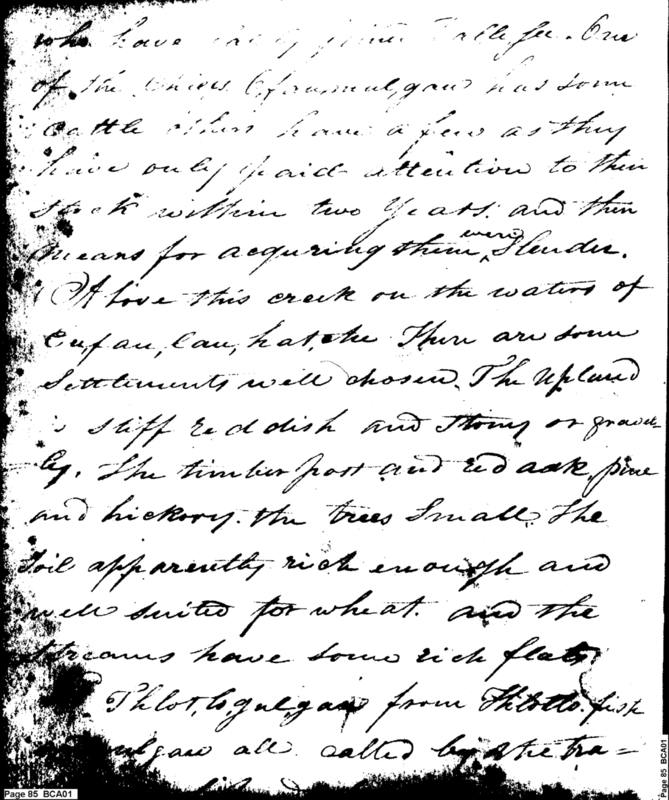 who have
of the Chiefs has some
cattle others have a few as they
have only paid attention to their
stock within two Years. and their
means for acquring them were Slender.
Above this creek on the waters of
Eu,fau,lau,hat,che There are some
Settlements well chosen. The upland
is stiff reddish and stony or gravel-
ly. The timber post and red oak, pine
and hickory. the trees Small. The
Soil apparently rich enough and
well suited for wheat. and the
streams have some rich flats
Thlot,lo,gul,gau from Thlotlo. fish
ulgau all. called by the tra=
Page 85 BCA01
Page 85 BCA01